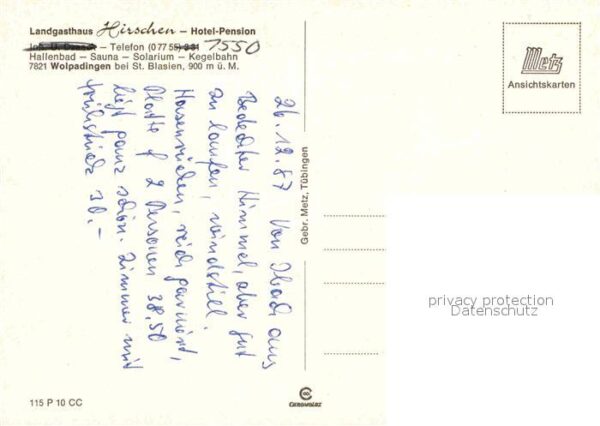 Landgasthaus Hirschen – Hotel-Pension
– Telefon (0 77 55) 1550
Hallenbad – Sauna – Solarium – Kegelbahn
7821 Wolpadingen bei St. Blasien, 900 m ü. M.
Metz
Ansichtskarten
26.12.87 Von Ibach aus
bedeckter Himmel, aber gut
zu laufen, windstill.
Hasenrücken, reich garniert,
Platte f 2 Personen 38,50
liegt ganz schön. Zimmer mit
Frühstück 30.–
Gebr. Metz, Tübingen
privacy protection
Datenschutz
115 P 10 CC
CHROMOLUX